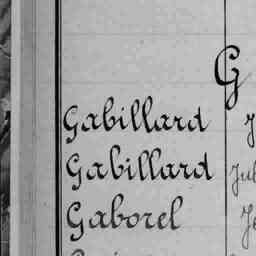 G
Gabillard
Gabillard
Gaborel